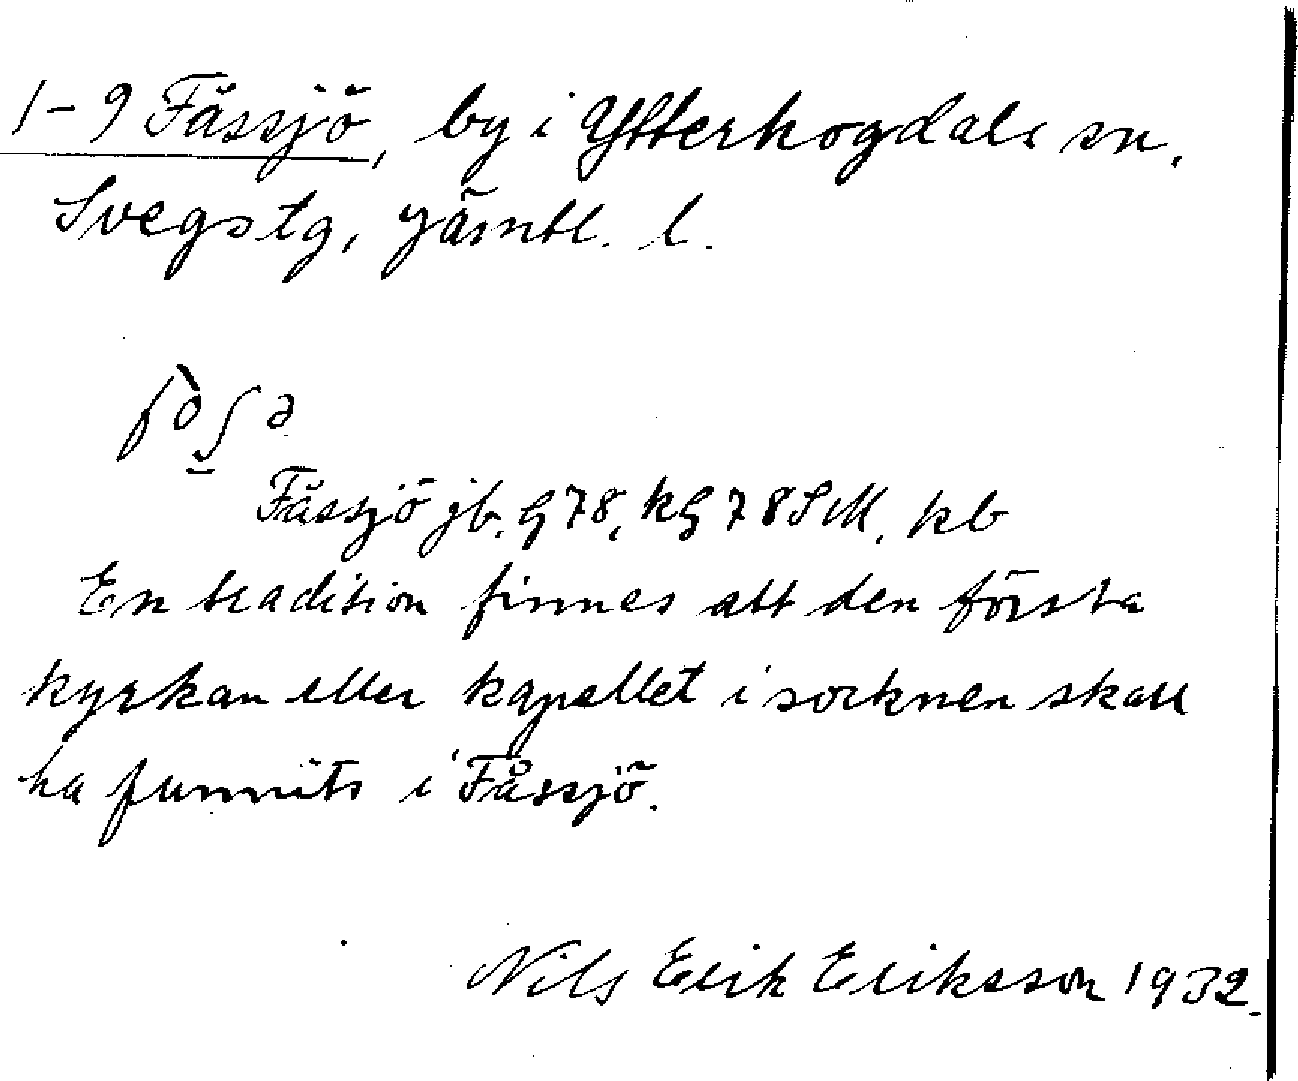 1-9 Fåssjö, by i Ytterhogdals sn.
Svegs tg, Jämtl. l.
Fåssjö jb. G 78, kG 78 SM, kb
En tradition finnes att den första
kyrkan eller kapellet i socknen skall
ha funnits i Fåssjö.
Nils Erik Eriksson 1932.